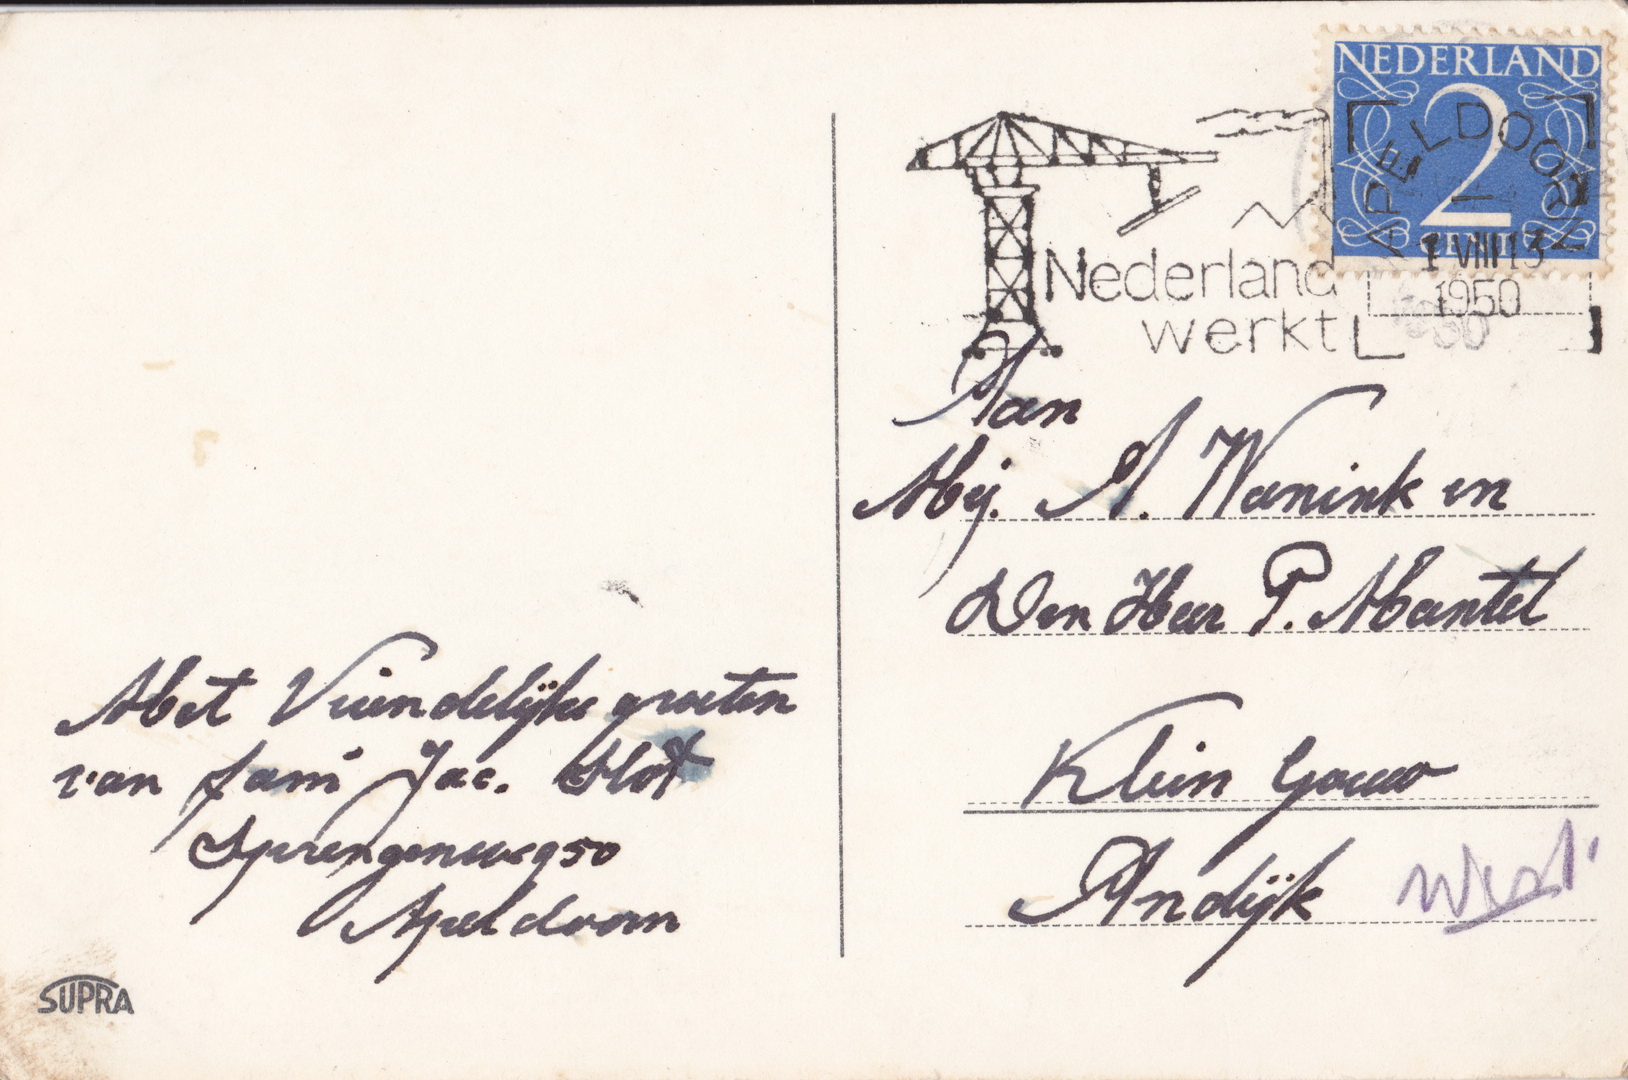 NEDERLAND
2
CENT
APELDOORN
1 VIII 13
1950
Nederland
werkt
Aan
Mej. A. Wanink en
Den Heer P. Mantel
Klein Gouw
Andijk West
Met Vriendelijke groeten
van fam Jac. Slot
Sprengenweg 50
Apeldoorn
SUPRA